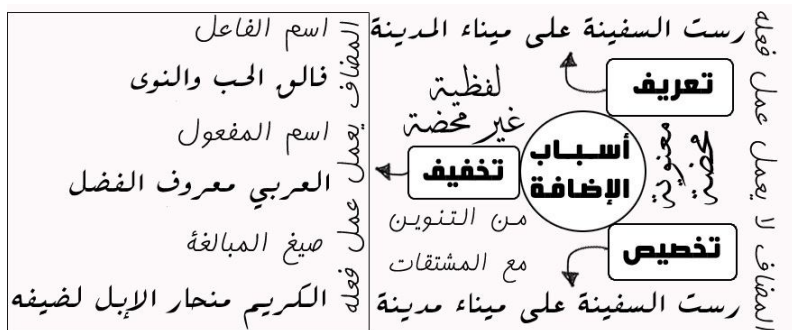 المضاف لا يعمل عمل فعله
رست السفينة على ميناء المدينة
تعريف
معنوية
محضة
أسباب
الإضافة
تخصيص
رست السفينة على ميناء مدينة
لفظية
غير محضة
تخفيف
من التنوين
مع المشتقات
المضاف يعمل عمل فعله
اسم الفاعل
فالق الحب والنوى
اسم المفعول
العربي معروف الفضل
صيغ المبالغة
الكريم منحار الإبل لضيفه